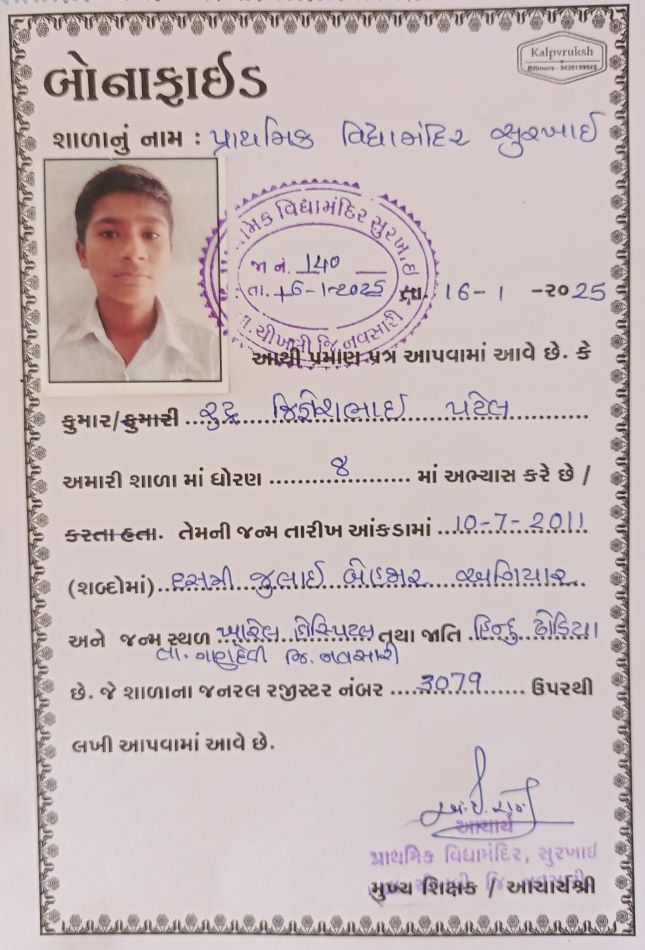 Kalpvruksh
બોનાફાઈડ
શાળાનું નામ : પ્રાથમિક વિદ્યામંદિર સુરખાઈ
વિદ્યામંદિર સુરખાઇ
જા નં. 140
તા. 16-1-2025
તા. 16- 1 -૨૦25
ચીખલી જિ. નવસારી
આથી પ્રમાણ પત્ર આપવામાં આવે છે. કે
કુમાર/કુમારી રુદ્ર જિજ્ઞેશભાઈ પટેલ
અમારી શાળા માં ધોરણ ૪ માં અભ્યાસ કરે છે /
કરતા હતા. તેમની જન્મ તારીખ આંકડામાં 10-7-2011
(શબ્દોમાં) દસમી જુલાઈ બેહજાર અગિયાર
અને જન્મ સ્થળ ખારેલ હોસ્પિટલ તથા જાતિ હિન્દુ ઢોડિયા
તા. ગણદેવી જિ. નવસારી
છે. જે શાળાના જનરલ રજીસ્ટર નંબર 3079 ઉપરથી
લખી આપવામાં આવે છે.
આચાર્ય
પ્રાથમિક વિદ્યામંદિર, સુરખાઇ
જિ. નવસારી
મુખ્ય શિક્ષક / આચાર્યશ્રી